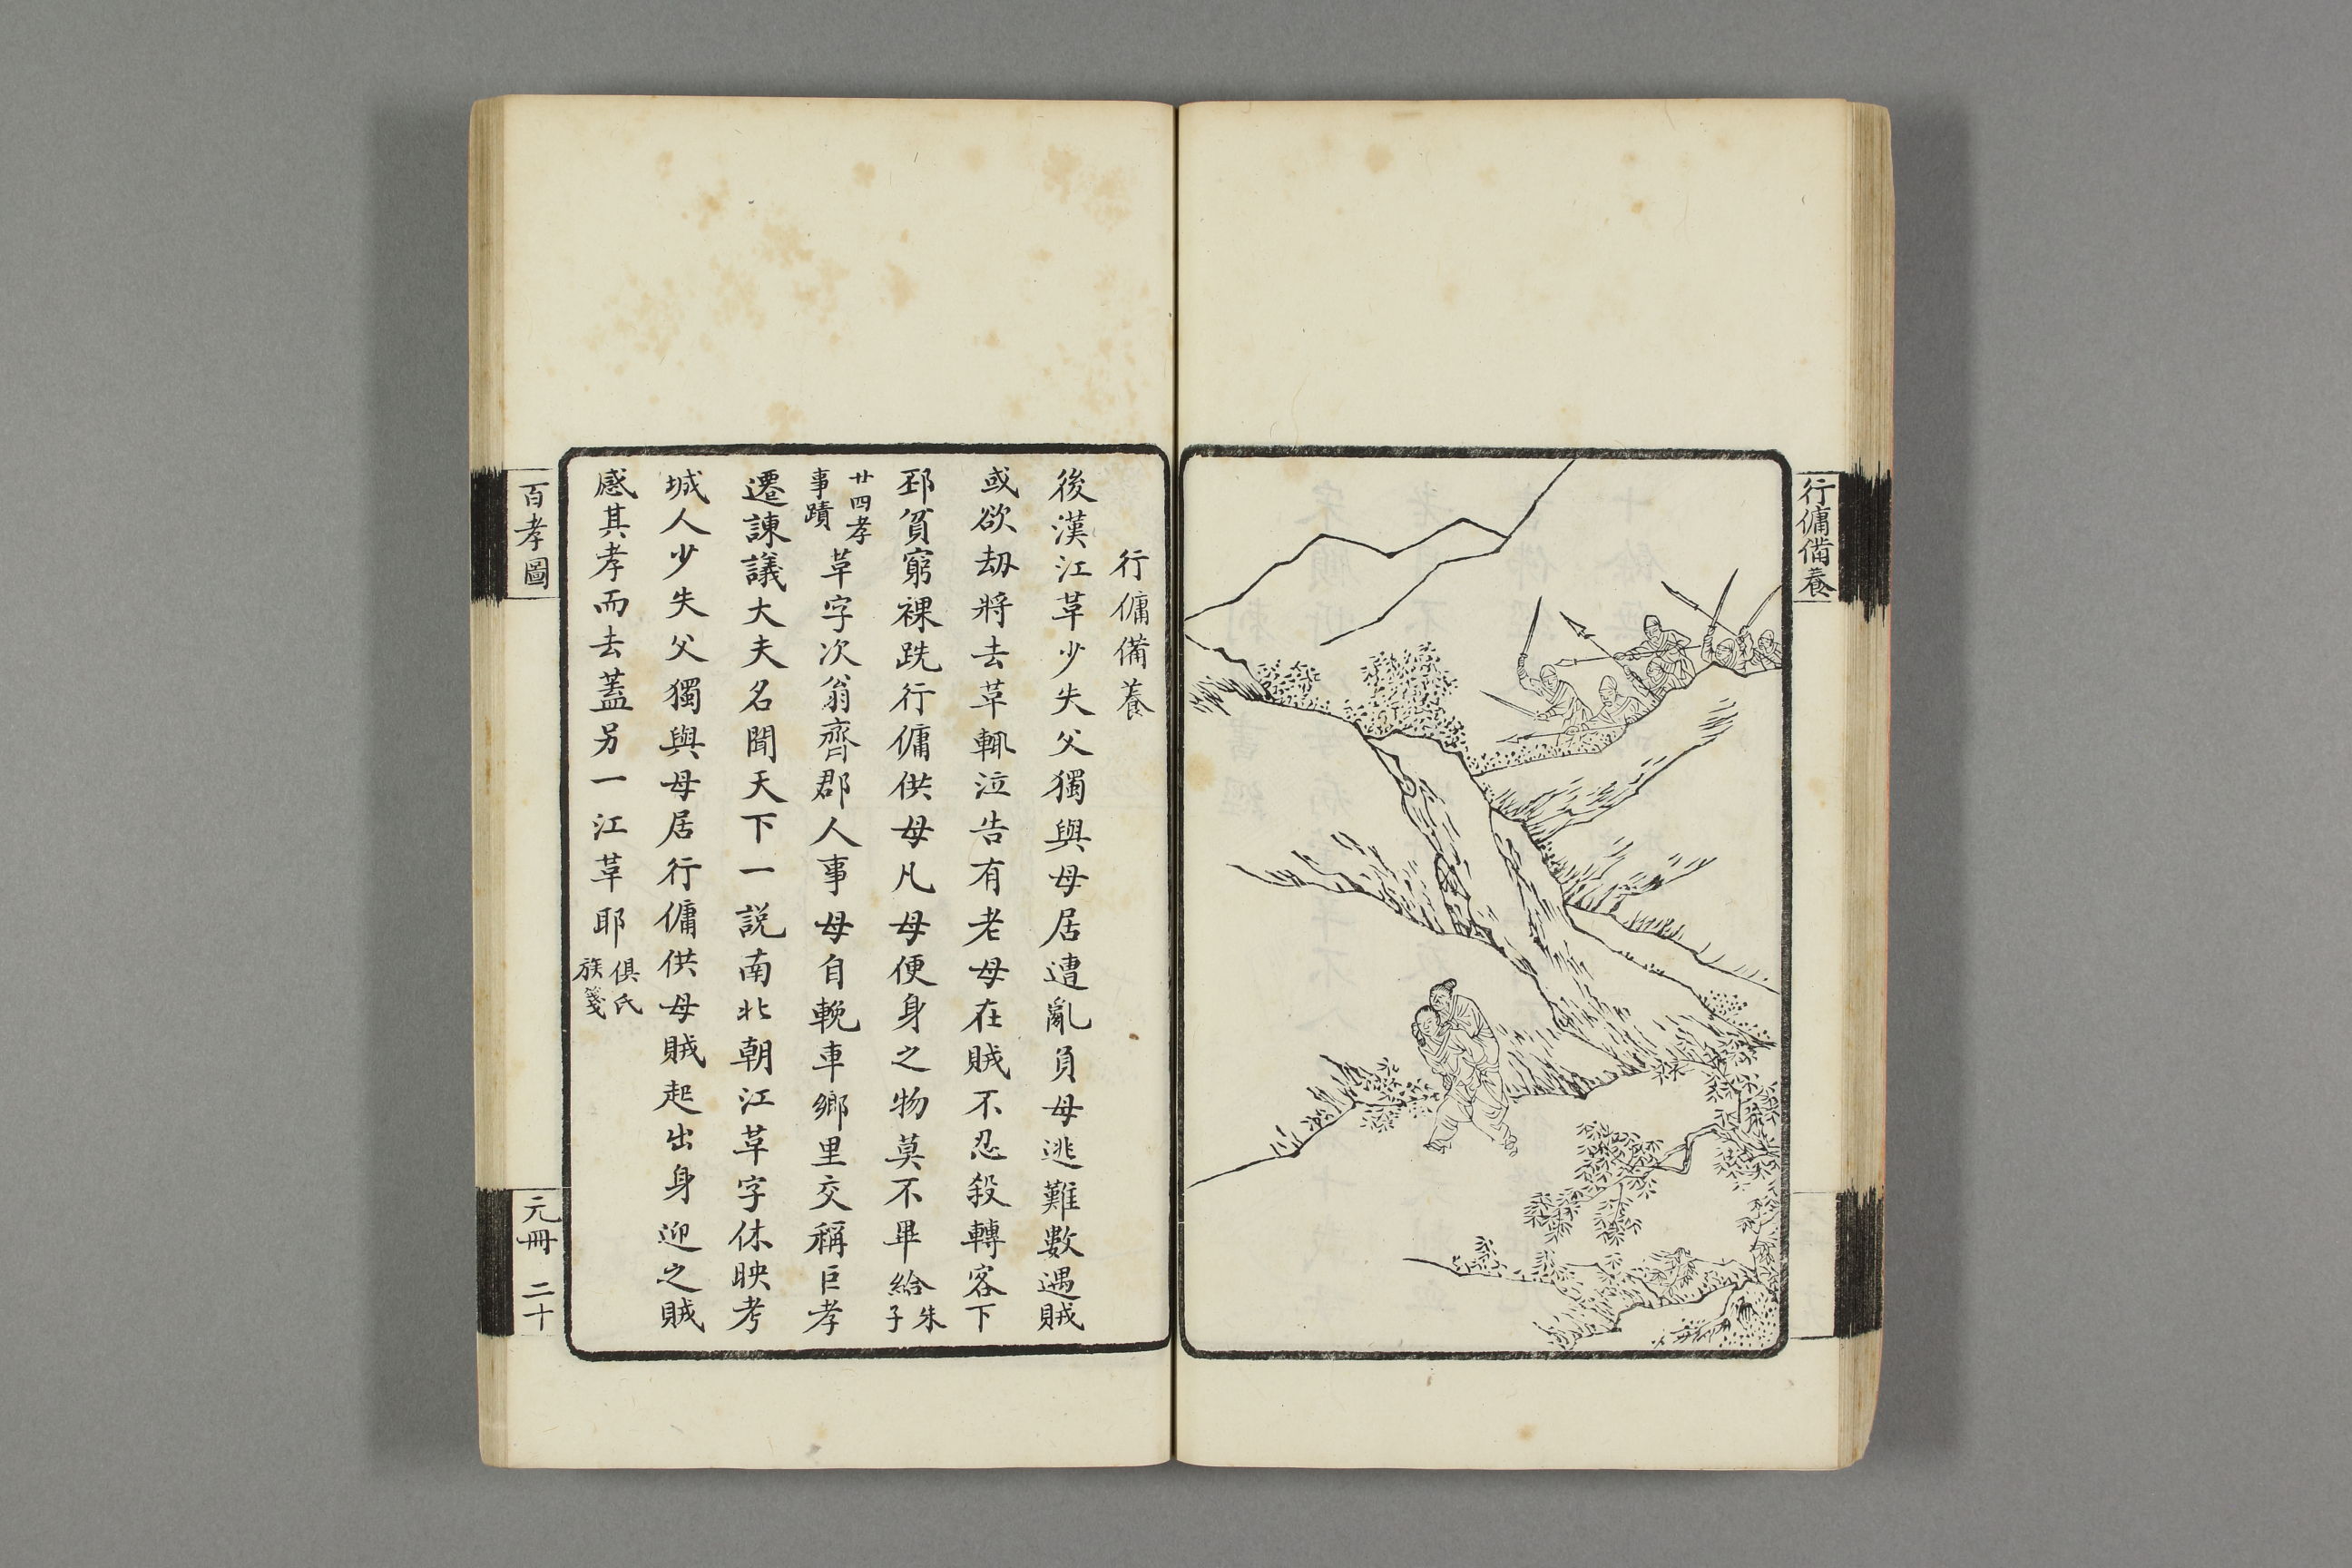 行傭備養
行傭備養
後漢江革少失父獨與母居遭亂負母逃難數遇賊
或欲刼將去革輒泣告有老母在賊不忍殺轉客下
邳貧窮裸跣行傭供母凡母便身之物莫不畢給朱子
廿四孝事蹟革字次翁齊郡人事母自輓車鄉里交稱巨孝
遷諫議大夫名聞天下一説南北朝江革字休映考
城人少失父獨與母居行傭供母賊起出身迎之賊
感其孝而去蓋另一江革耶俱氏族箋
百孝圖
元冊 二十